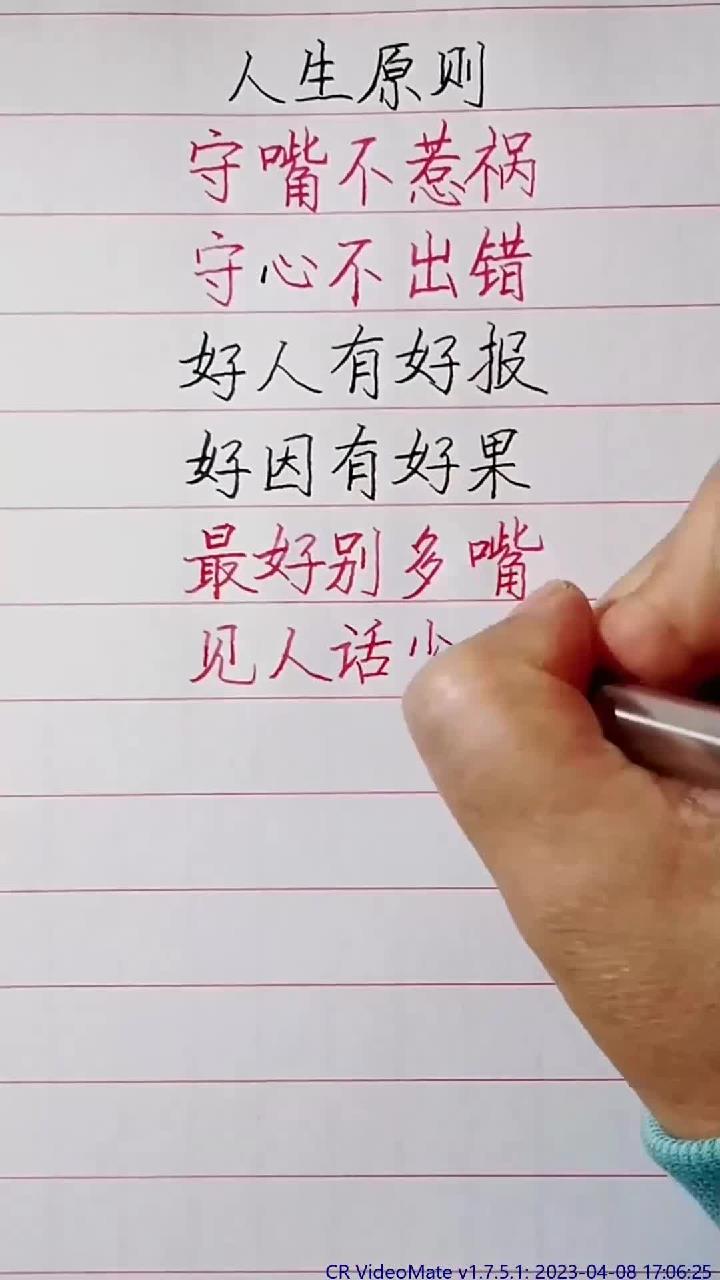 人生原则
守嘴不惹祸
守心不出错
好人有好报
好因有好果
最好别多嘴
见人话少
CR VideoMate v1.7.5.1: 2023-04-08 17:06:25